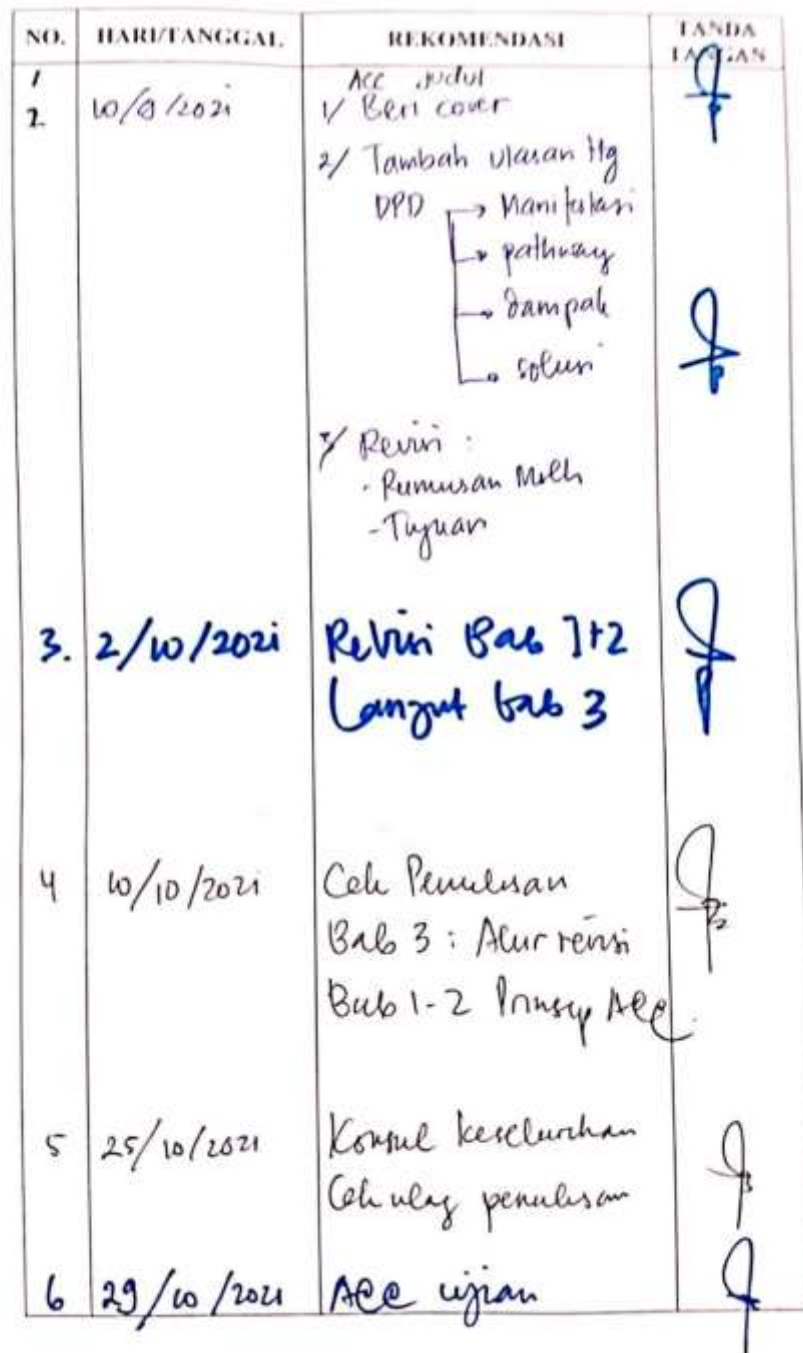 NO. HARI/TANGGAL REKOMENDASI TANDA TANGAN
1 ACC judul
2 10/9/2021 1/ Beri cover
2/ Tambah ulasan ttg
DPD → Manifestasi
→ pathway
→ dampak
→ solusi
3/ Revisi :
- Rumusan Mslh
- Tujuan
3. 2/10/2021 Revisi Bab 1+2
Lanjut bab 3
4 10/10/2021 Cek Penulisan
Bab 3 : Alur revisi
Bab 1-2 Prinsip Acc.
5 25/10/2021 Konsul keseluruhan
Cek ulag penulisan
6 29/10/2021 Acc ujian